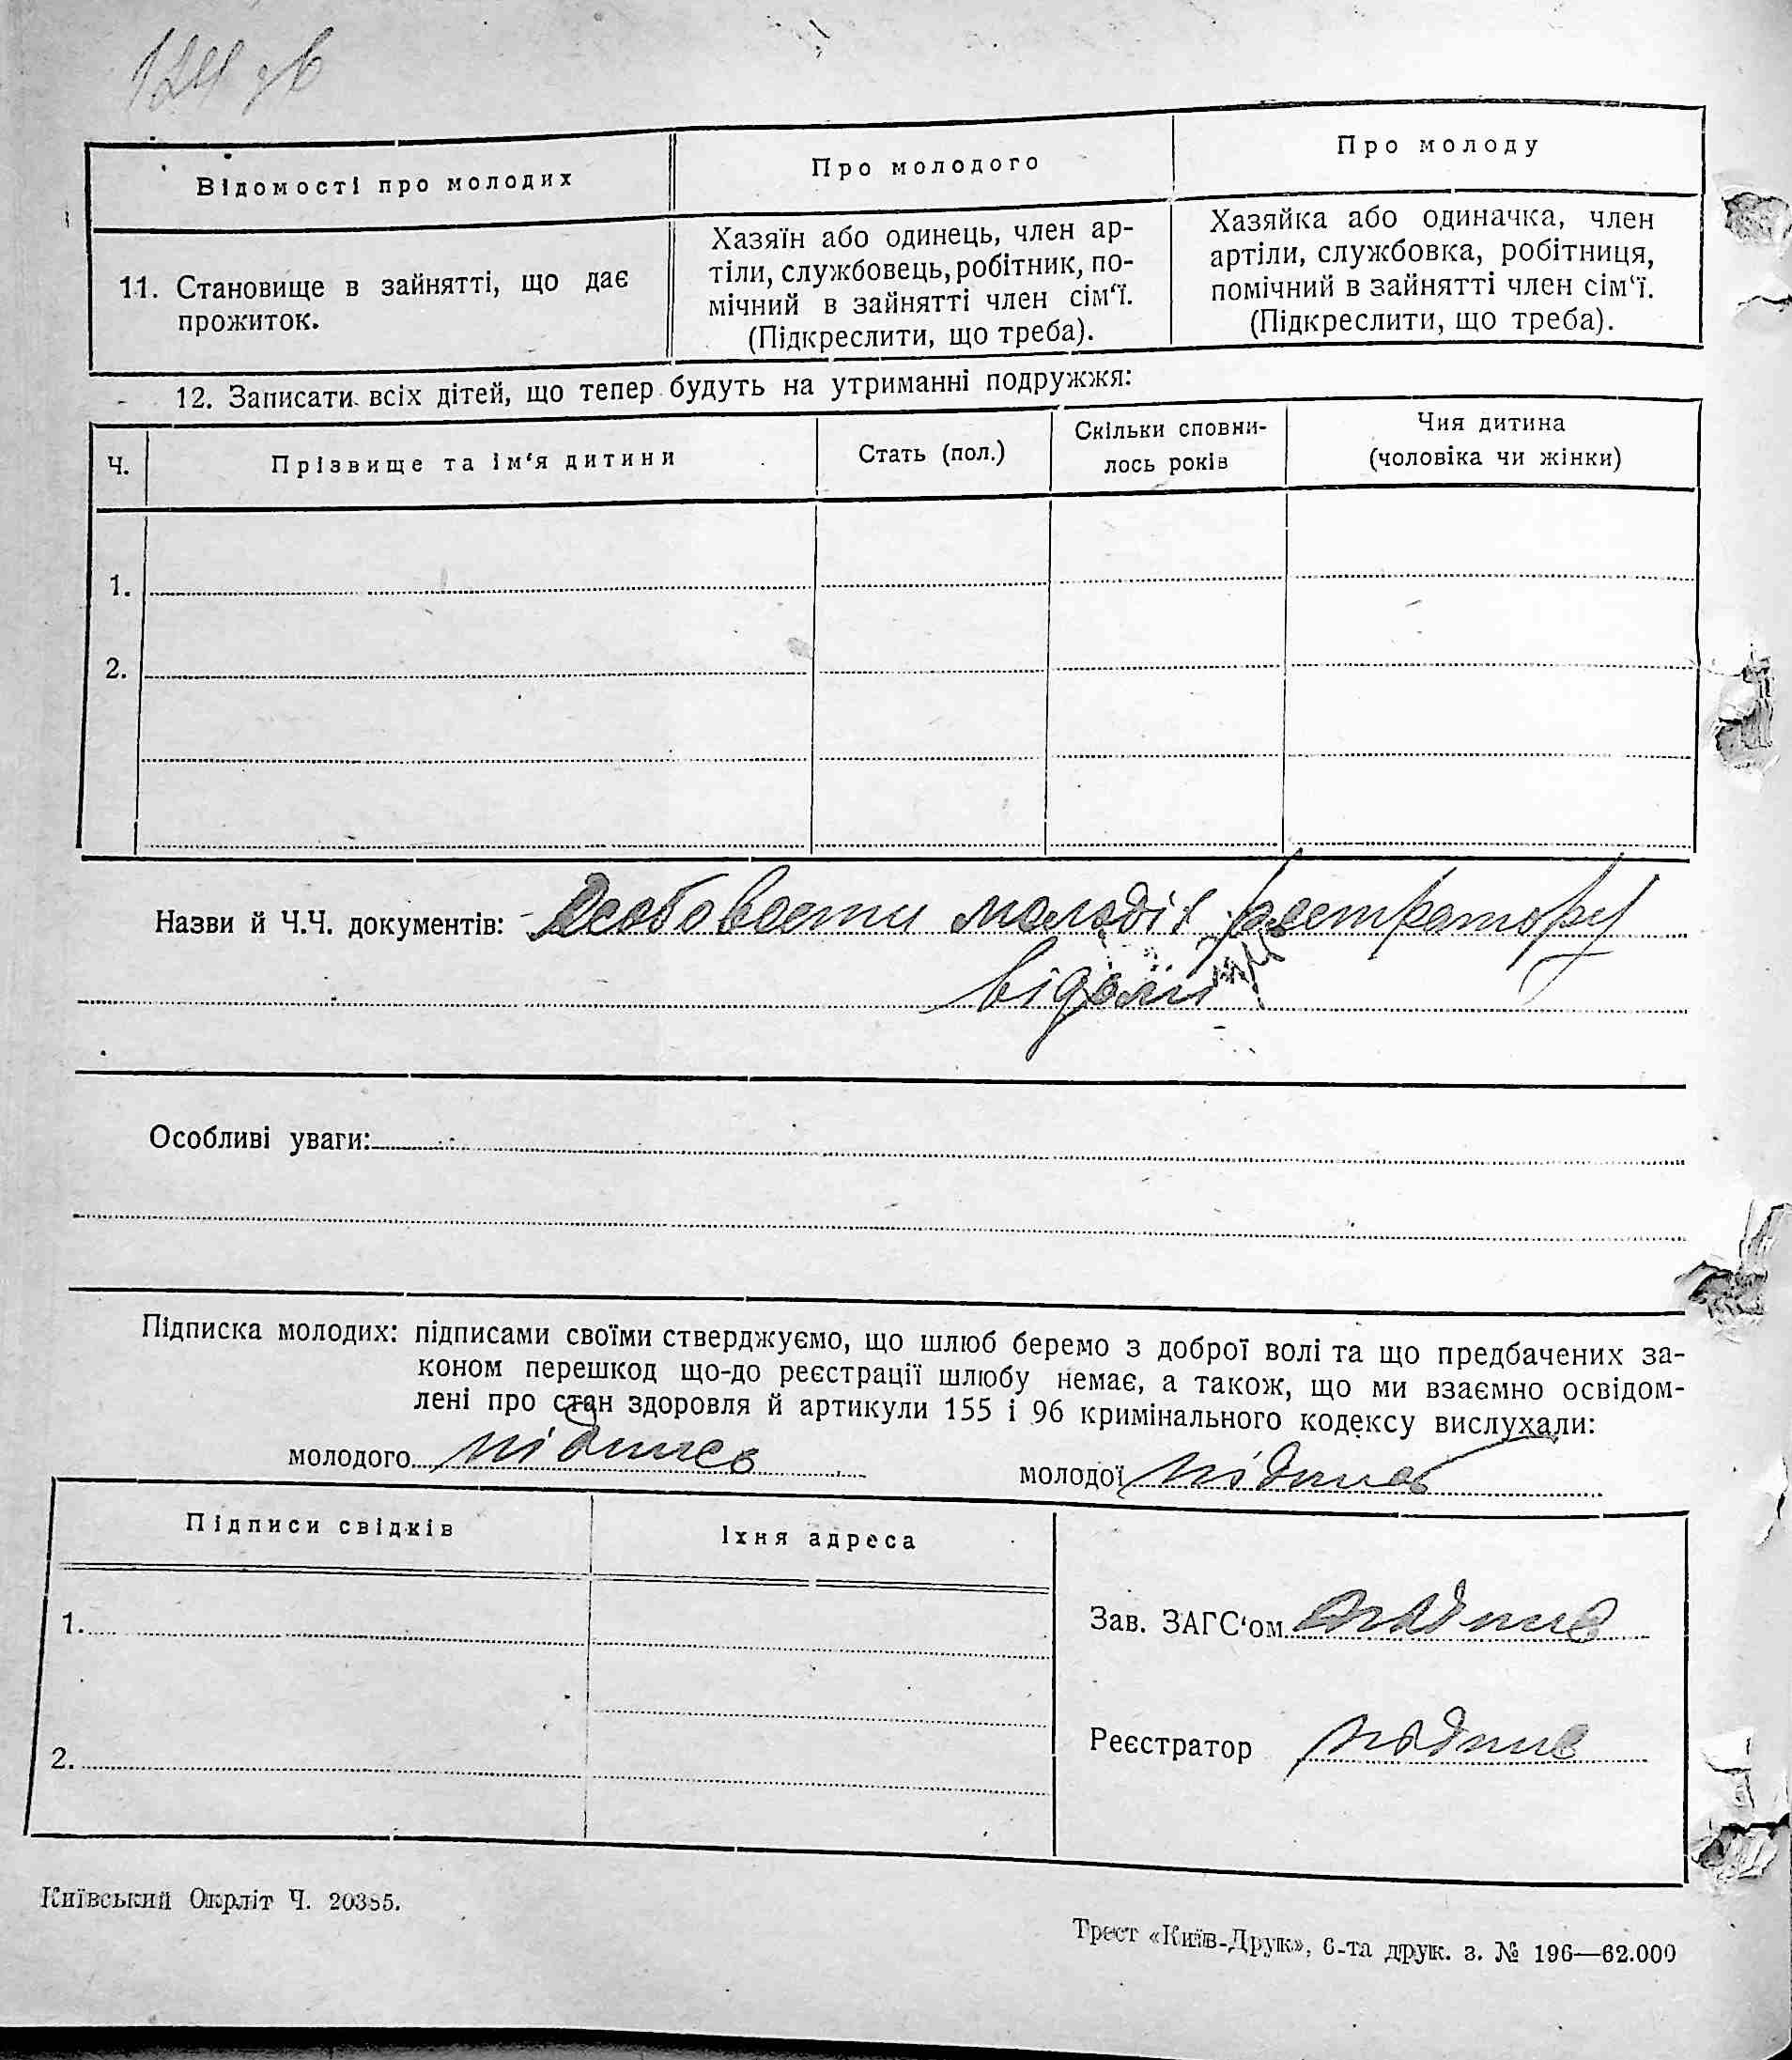 124 зв
Відомості про молодих
Про молодого
Про молоду
11. Становище в зайнятті, що дає
прожиток.
Хазяїн або одинець, член ар-
тіли, службовець, робітник, по-
мічний в зайнятті член сім‘ї.
(Підкреслити, що треба).
Хазяйка або одиначка, член
артіли, службовка, робітниця,
помічний в зайнятті член сім‘ї.
(Підкреслити, що треба).
12. Записати всіх дітей, що тепер будуть на утриманні подружжя:
Ч.
Прізвище та ім‘я дитини
Стать (пол.)
Скільки сповни-
лось років
Чия дитина
(чоловіка чи жінки)
1.
2.
Назви й Ч.Ч. документів: Особовости молодіх реєстратору
відомі
Особливі уваги:
Підписка молодих: підписами своїми стверджуємо, що шлюб беремо з доброї волі та що предбачених за-
коном перешкод що-до реєстрації шлюбу немає, а також, що ми взаємно освідом-
лені про стан здоровля й артикули 155 і 96 кримінального кодексу вислухали:
молодого підпис молодої підпис
Підписи свідків
Їхня адреса
1.
2.
Зав. ЗАГС‘ом підпис
Реєстратор підпис
Київський Окрліт Ч. 20385.
Трест «Київ-Друк», 6-та друк. з. № 196—62.000